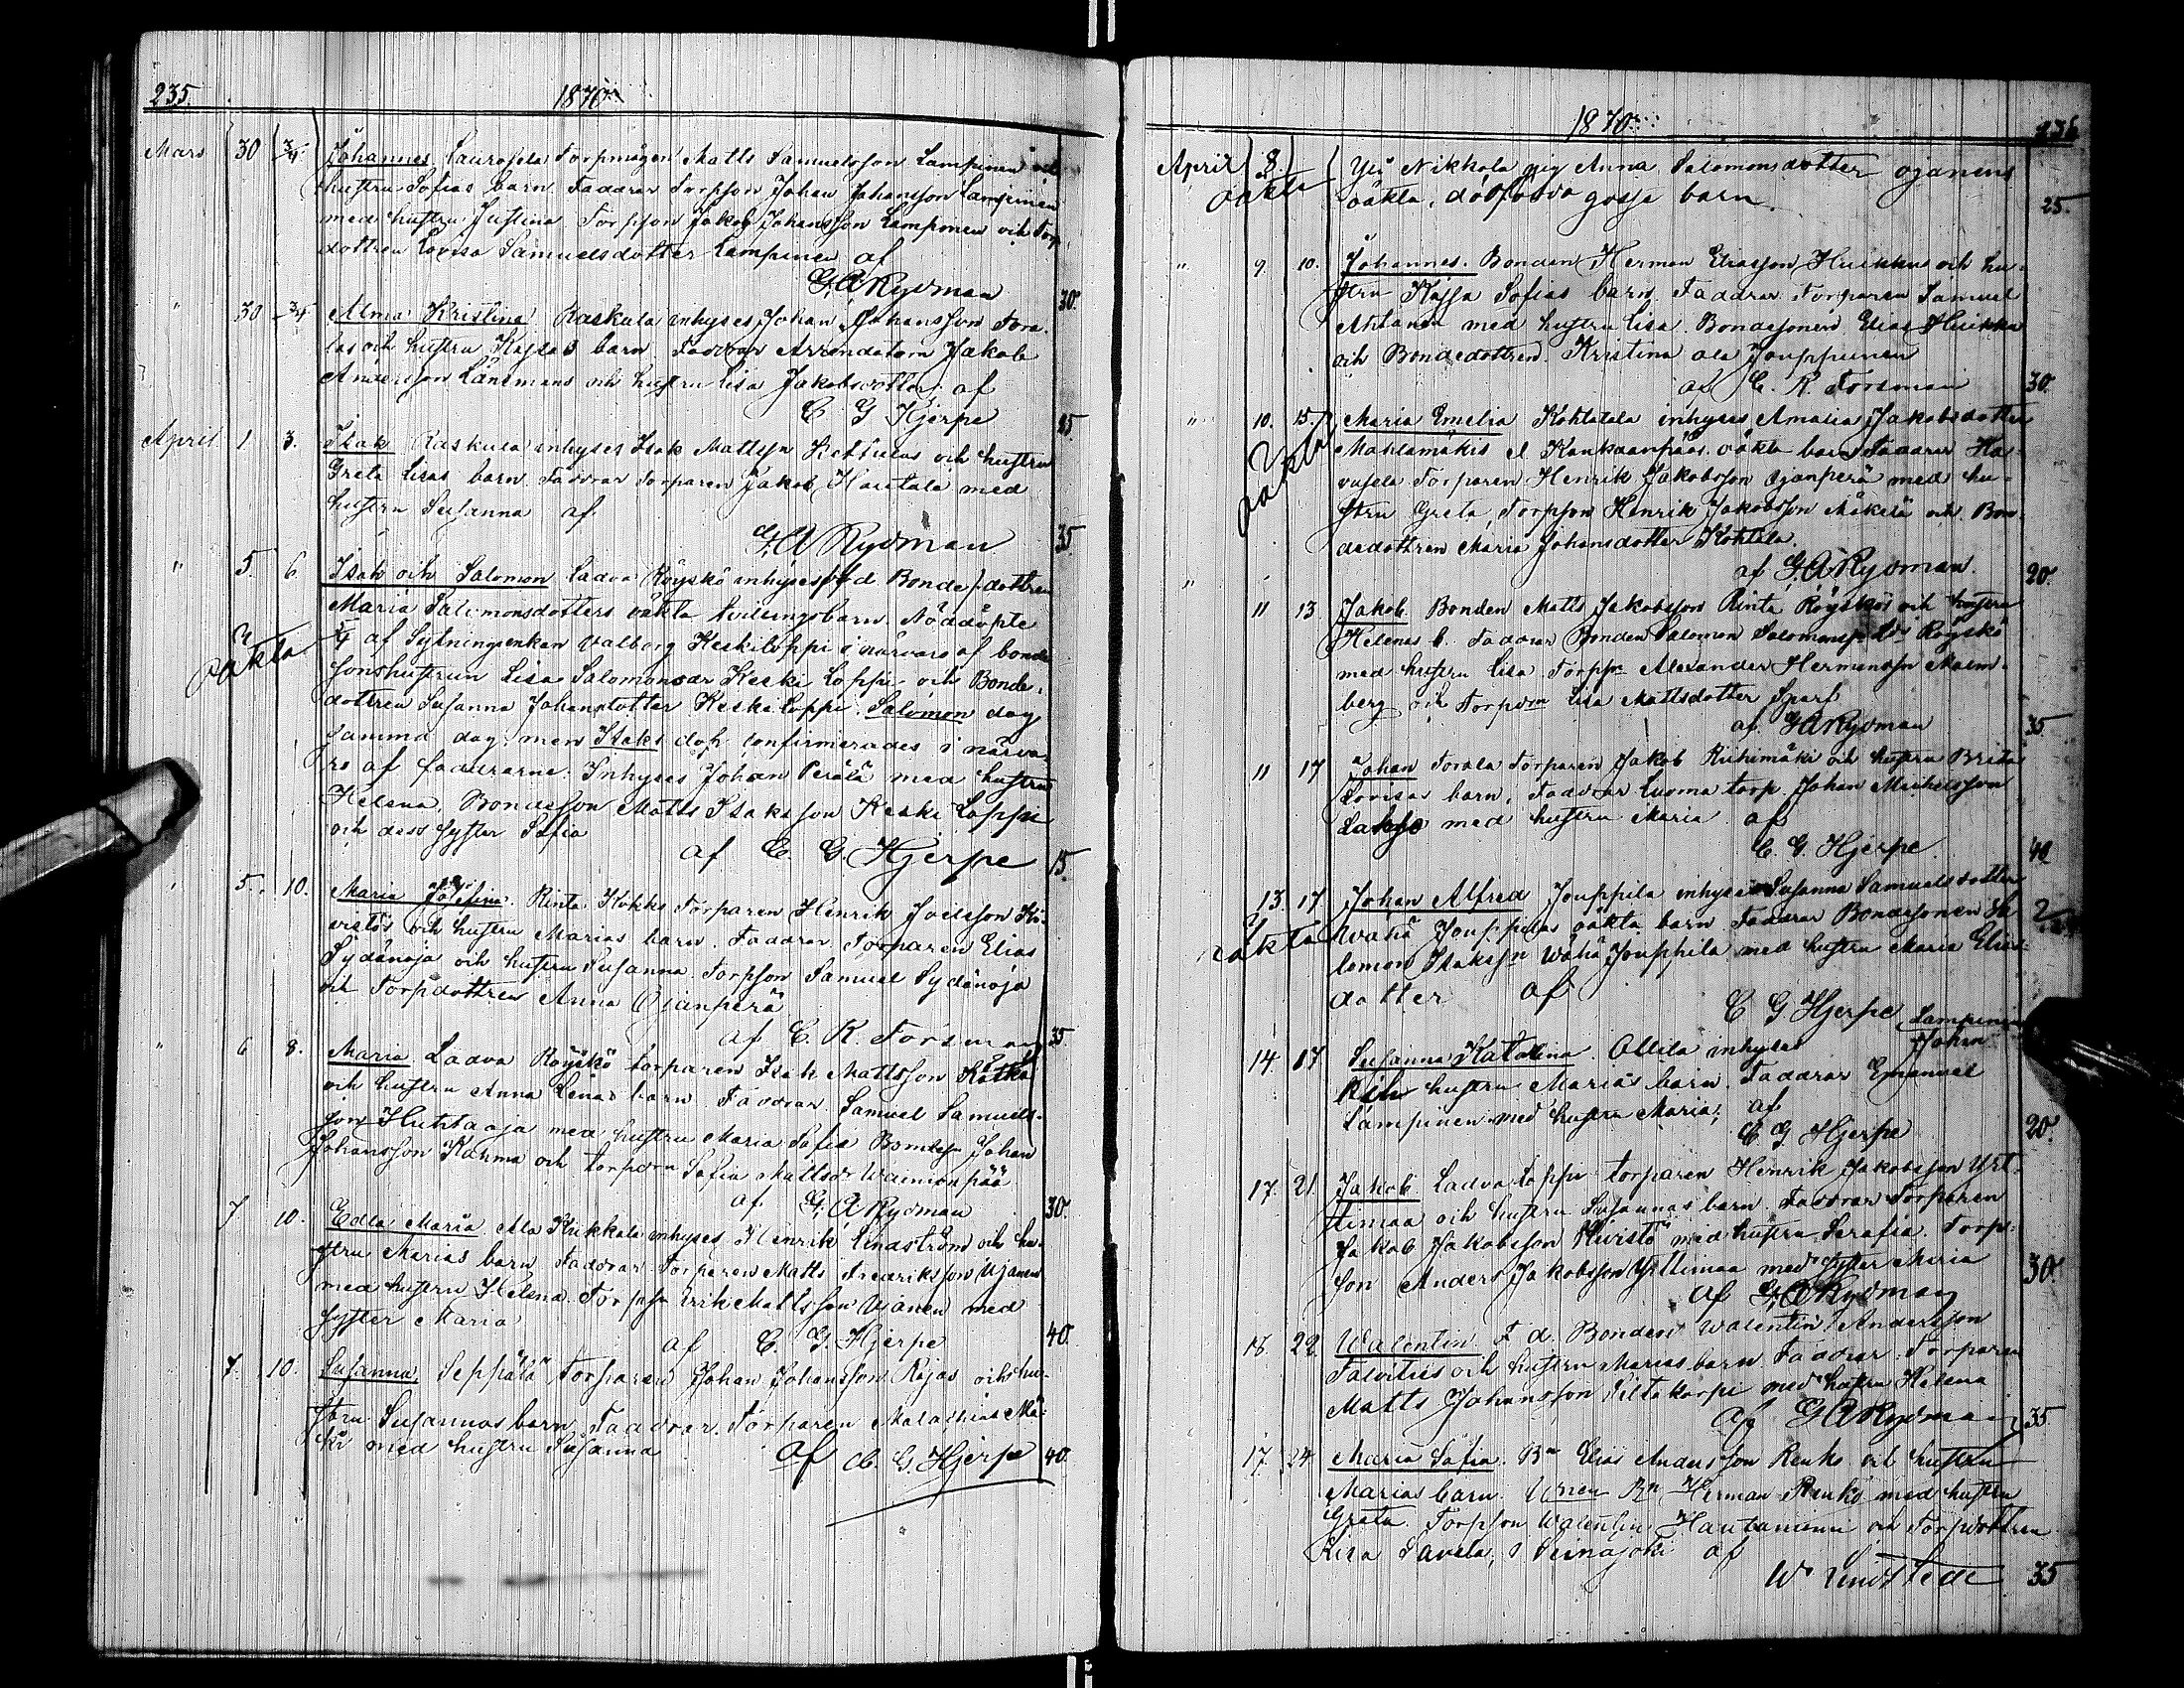 235.
1870
Mars 30 3/4 Johannes Laurosela Torpmågen Matts Samuelsson Lampinen och
hustru Sofias barn. Faddrar Torpson Johan Johansson Lampinen
med hustru Justina Torpson Jakob Johansson Lampinen och Torp
dottren Lovisa Samuelsdotter Lampinen af
G. A Rydman 30.
" 30 3/4 Alma Kristina Raskala inhyses Johan Johansson Tora-
las och hustru Kajsas barn Faddrar Arrendatorn Jakob
Andersson Länsmans och hustru Lisa Jakobsdotter af
C G Hjerpe 25.
April 1. 3. Isak Raskala inhyses Isak Mattsn och hustru
Greta Lisas barn Faddrar Torparen Jakob Hautala med
hustru Susanna af
G. A Rydman 35
" 5. 6. Isak och Salomon Ladva Röyskö inhyses f. d. Bonde dottren
Maria Salomonsdotters oäkta tvillingsbarn. Nöddöpte
oäkta 5/4 af Sytningsenkan Valborg Keskiloppi i närvaro af bonde
sonshustrun Lisa Salomonsdr Keski Loppi och Bonde-
dottren Susanna Johansdotter Keski Loppi. Salomon dog
samma dag, men Isaks dop confirmerades i närva-
ro af faddrarne: Inhyses Johan Perälä med hustru
Helena, Bondesson Matts Isaksson Keski Loppi
och dess syster Sofia
af C. G. Hjerpe 15.
5. 10. Maria Josefina. Rinta Kokko Torparen Henrik Joelsson Ko-
vistös och hustru Marias barn. Faddrar Torparen Elias
Sydänoja och hustru Susanna. Torpson Samuel Sydänoja
och Torpdottren Anna Ojanperä
af C. R. Forsman 35.
" 6 8. Maria Ladva Röyskö torparen Isak Mattsson Kotka
och hustru Anna Lenas barn Faddrar Samuel Samuels-
son Huhtaoja med hustru Maria Sofia Bondesn Johan
Johansson Kahma och torpdrn Sofia Mattsdr Wainionpää
af G. A Rydman 30.
7 10. Edla Maria. Ala Kukkala inhyses Henrik Lindström och hu-
stru Marias barn Faddrar Torparen Matts Fredriksson Ojanen
med hustru Helena. Torpsn Erik Mattsson Ojanen med
syster Maria
af C. G. Hjerpe 40.
7. 10. Susanna Seppälä Torparen Johan Johansson Rajas och hu-
stru Susannas barn Faddrar. Torparen Malachias Mä-
ki med hustru Susanna af C. G. Hjerpe 40.
1870
236
April 8. Yli Nikkola pig Anna Salomonsdotter Ojanens
oäkta oäkta, dödfödda gosse barn. 25.
" 9. 10. Johannes. Bonden Herman Eliasson Huikkus och hu-
stru Kajsa Sofias barn Faddrar Torparen Samuel
Ahtanen med hustru Lisa. Bondesonen Elias Huikku
och Bondedottren Kristina Ala Jouppinen
af C. R. Forsman 30
" 10. 15. Maria Emelia Kohtatala inhyses Amalia Jakobsdotter
oäkta Mahlamäkis el Kankaanpääs oäkta barn Faddrar Ha-
vusela Torparen Henrik Jakobsson Ojanperä med hu-
stru Greta, Torpson Henrik Jakobsson Mäkelä och Bon-
dedottren Maria Johansdotter Kohtala.
af G. A Rydman. 20.
" 11 13 Jakob Bonden Matts Jakobsson Rinta Röyskös och hustru
Helenas b. Faddrar Bonden Salomon Salomonss Röyskö
med hustru Lisa Torppn Alexander Hermansson Malm-
berg och Torpdrn Lisa Mattsdotter Sparf
af G A Rydman 35.
11 17 Johan Torala Torparen Jakob Riihimäki och hustru Brita
Lovisas barn. Faddrar Luoma torp. Johan Michelsson
med hustru Maria af
C. G. Hjerpe 40
13. 17. Johan Alfred Jouppila inhyses Susanna Samuelsdotter
oäkta Wähä Jouppilas oäkta barn. Faddrar Bondesonen Sa-
lomon Isaksn Wähä Jouppila med hustru Maria Elias
dotter af
C G Hjerpe
14. 17 Susanna Katalina. Ollila inhyses Johan Lampinen
och hustru Marias barn. Faddrar Emanuel
Lampinen med hustru Maria, af
C G Hjerpe 20.
17. 21. Jakob Ladva Loppi torparen Henrik Jakobsson Yrt-
timaa och hustru Susannas barn Faddrar Torparen
Jakob Jakobsson Kivistö med hustru Serafia. Torp-
son Anders Jakobsson Yrttimaa med syster Maria
af G. A Rydman 30.
18. 22. Walentin F. d. Bonden Walentin Andersson
Talvities och hustru Marias barn Faddrar: Torparen
Matts Johansson Siltakorpi med hustru Helena
af G A Rydman 35
17. 24 Maria Sofia. Bn Elias Andersson Renko och hustru
Marias barn. Bn Herman Renko med hustru
Greta. Torpson Walentin Hautaniemi och Torpdottren
Lisa Savela, i Seinäjoki af
W Lindstedt 35